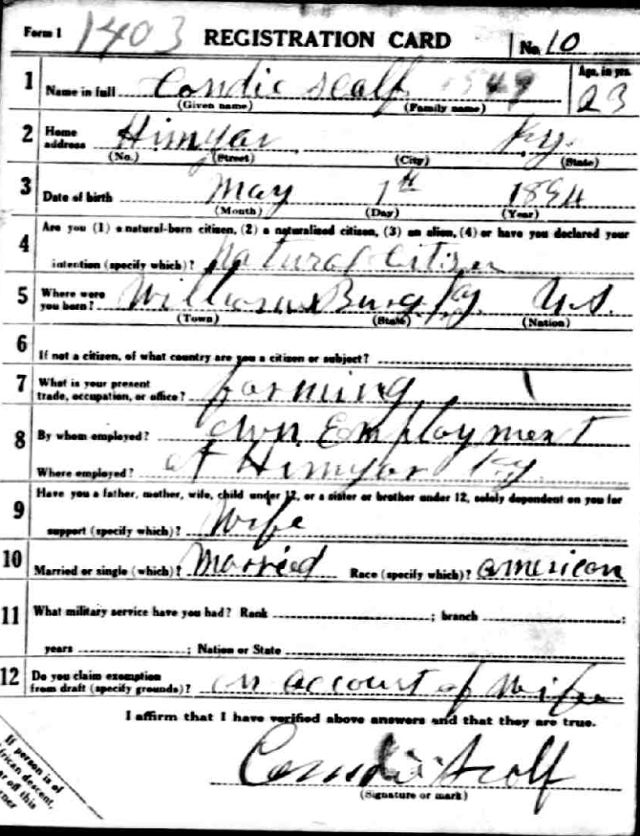 Form 1 1403 REGISTRATION CARD No. 10
1 Name in full Condie Scalf 49 Age, in yrs. 23
(Given name) (Family name)
2 Home address Himyar, Ky.
(No.) (Street) (City) (State)
3 Date of birth May 7th 1894
(Month) (Day) (Year)
4 Are you (1) a natural-born citizen, (2) a naturalized citizen, (3) an alien, (4) or have you declared your
intention (specify which)? Natural Citizen
5 Where were you born? WilliamsBurg Ky. U.S.
(Town) (State) (Nation)
6 If not a citizen, of what country are you a citizen or subject?
7 What is your present trade, occupation, or office? farming
8 By whom employed? own Employment
Where employed? at Himyar Ky.
9 Have you a father, mother, wife, child under 12, or a sister or brother under 12, solely dependent on you for
support (specify which)? Wife
10 Married or single (which)? Married Race (specify which)? American
11 What military service have you had? Rank ; branch ;
years ; Nation or State
12 Do you claim exemption from draft (specify grounds)? on account of Wife
I affirm that I have verified above answers and that they are true.
Condie Scalf
(Signature or mark)
If person is of
African descent,
off this